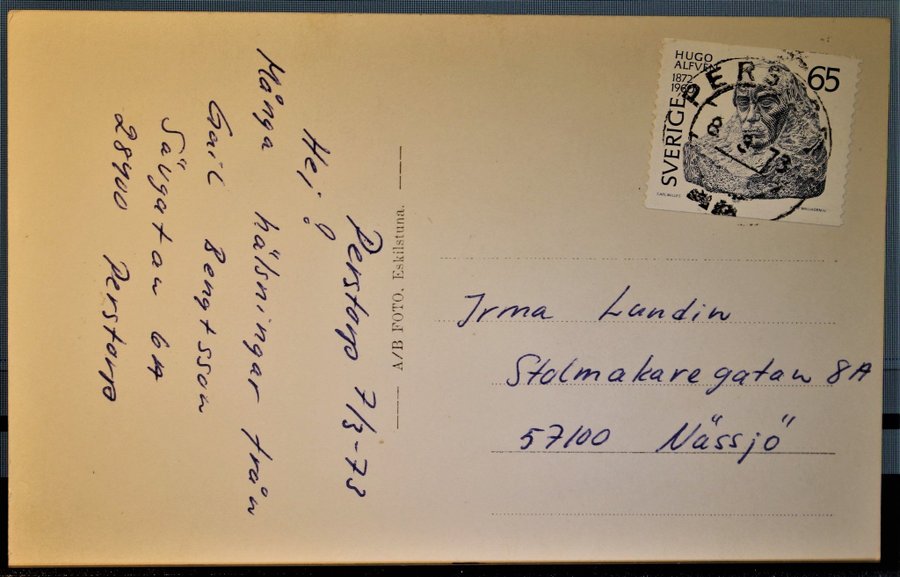 Perstorp 7/3-73
Hej!
Många hälsningar från
Gail Bengtsson
Sävgatan 6A
28400 Perstorp
A/B FOTO. Eskilstuna.
HUGO
ALFVÉN
1872
1960
65
SVERIGE
PERS
8 3 73
Irma Lundin
Stolmakaregatan 8A
57100 Nässjö